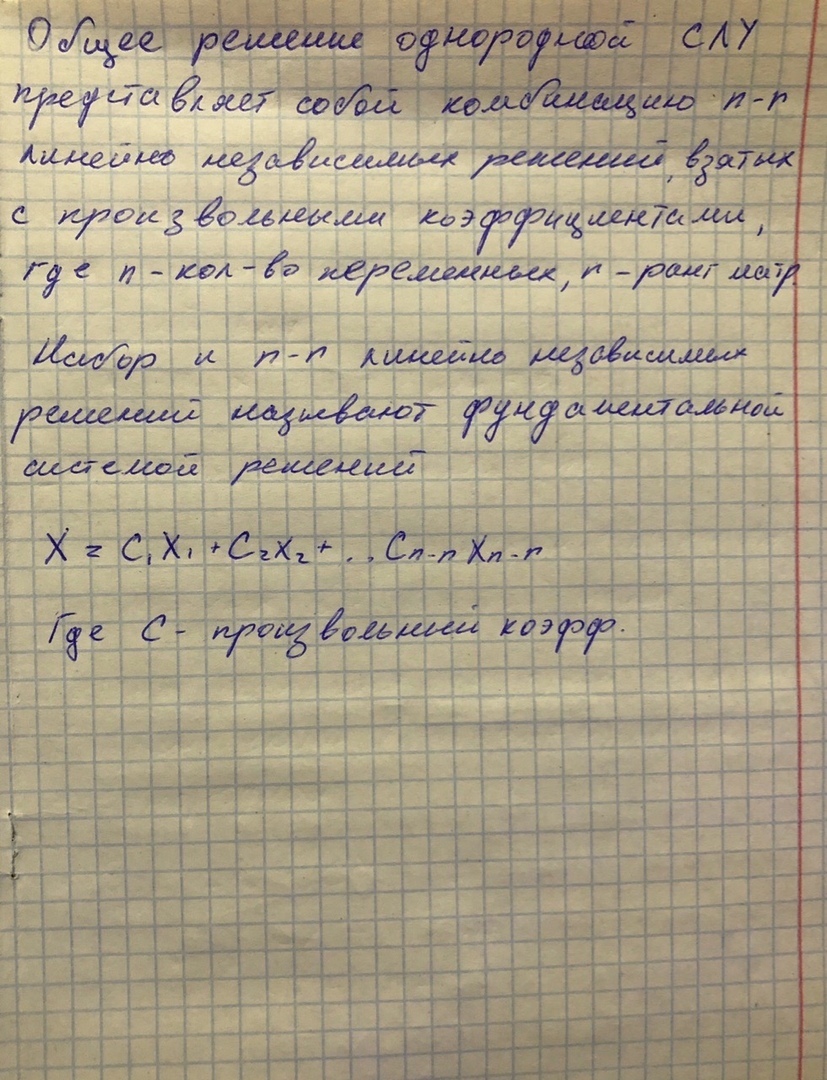 Общее решение однородной СЛУ
представляет собой комбинацию n-r
линейно независимых решений, взятых
с произвольными коэффициентами,
где n - кол-во переменных, r - ранг матр.
Набор и n-r линейно независимых
решений называют фундаментальной
системой решений
X = C₁X₁ + C₂X₂ + ... Cn-r Xn-r
Где C - произвольный коэфф.